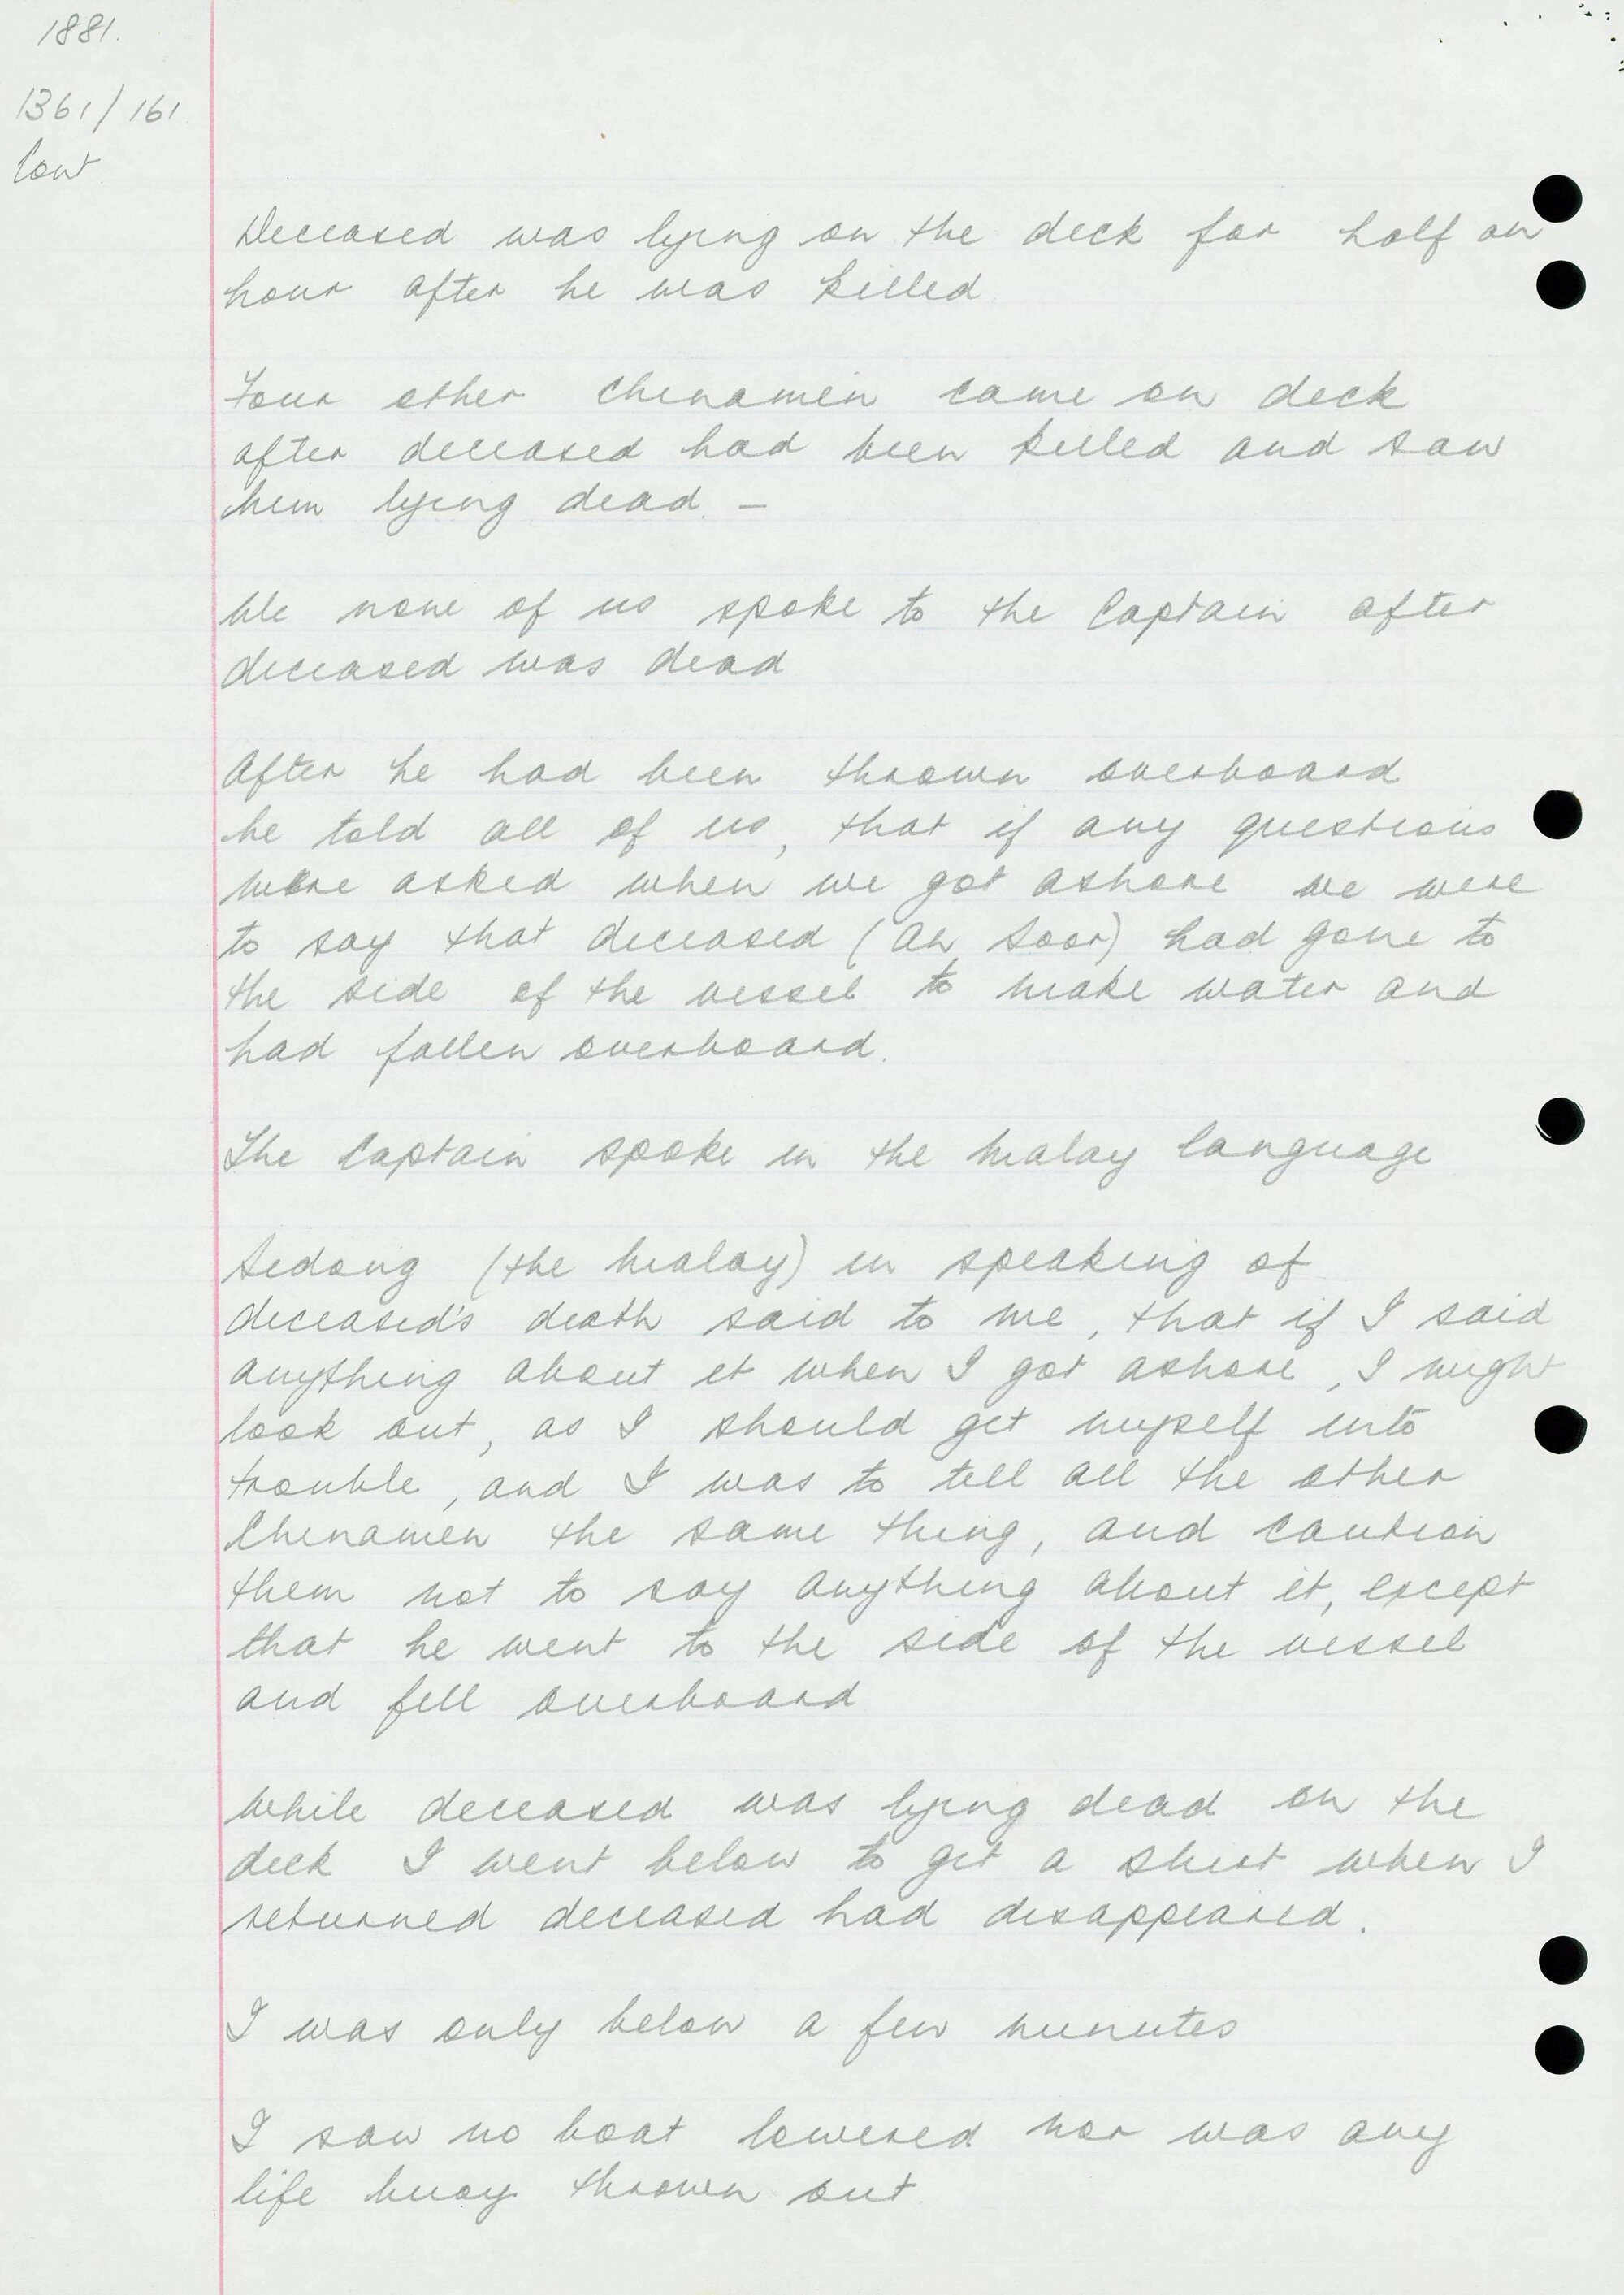 1881.
1361/161.
Cont
Deceased was lying on the deck for half an
hour after he was killed
Four other Chinamen came on deck
after deceased had been killed and saw
him lying dead. —
We none of us spoke to the Captain after
deceased was dead
After he had been thrown overboard
he told all of us, that if any questions
were asked when we got ashore we were
to say that deceased (Ah Soor) had gone to
the side of the vessel to make water and
had fallen overboard.
The Captain spoke in the Malay language
Sedong (the Malay) in speaking of
deceased's death said to me, that if I said
anything about it when I got ashore, I might
look out, as I should get myself into
trouble, and I was to tell all the other
Chinamen the same thing, and caution
them not to say anything about it, except
that he went to the side of the vessel
and fell overboard
While deceased was lying dead on the
deck I went below to get a shirt when I
returned deceased had disappeared.
I was only below a few minutes
I saw no boat lowered nor was any
life buoy thrown out